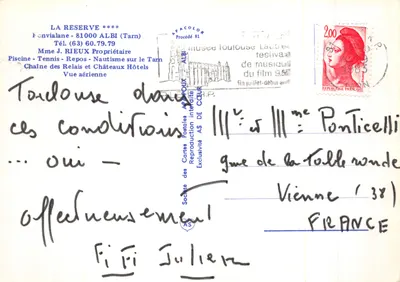 LA RESERVE ****
Fonvialane - 81000 ALBI (Tarn)
Tél. (63) 60.79.79
Mme J. RIEUX Propriétaire
Piscine - Tennis - Repos - Nautisme sur le Tarn
Chaîne des Relais et Châteaux Hôtels
Vue aérienne
APACOLOR
Société des Cartes Postales APA-POUX - ALBI
Reproduction interdite
Exclusivité AS DE CŒUR
AS
musée Toulouse Lautrec
festivals
de musique
du film 9.50
2,00
REPUBLIQUE FRANÇAISE
Toulouse dans
ces conditions
... oui -
affectueusement
Fifi Julien
Mr et Mme Ponticelli
que de la Table ronde
Vienne (38)
FRANCE